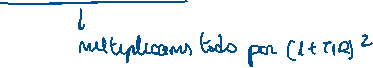 multiplicamos todo por (1 + TIR)²